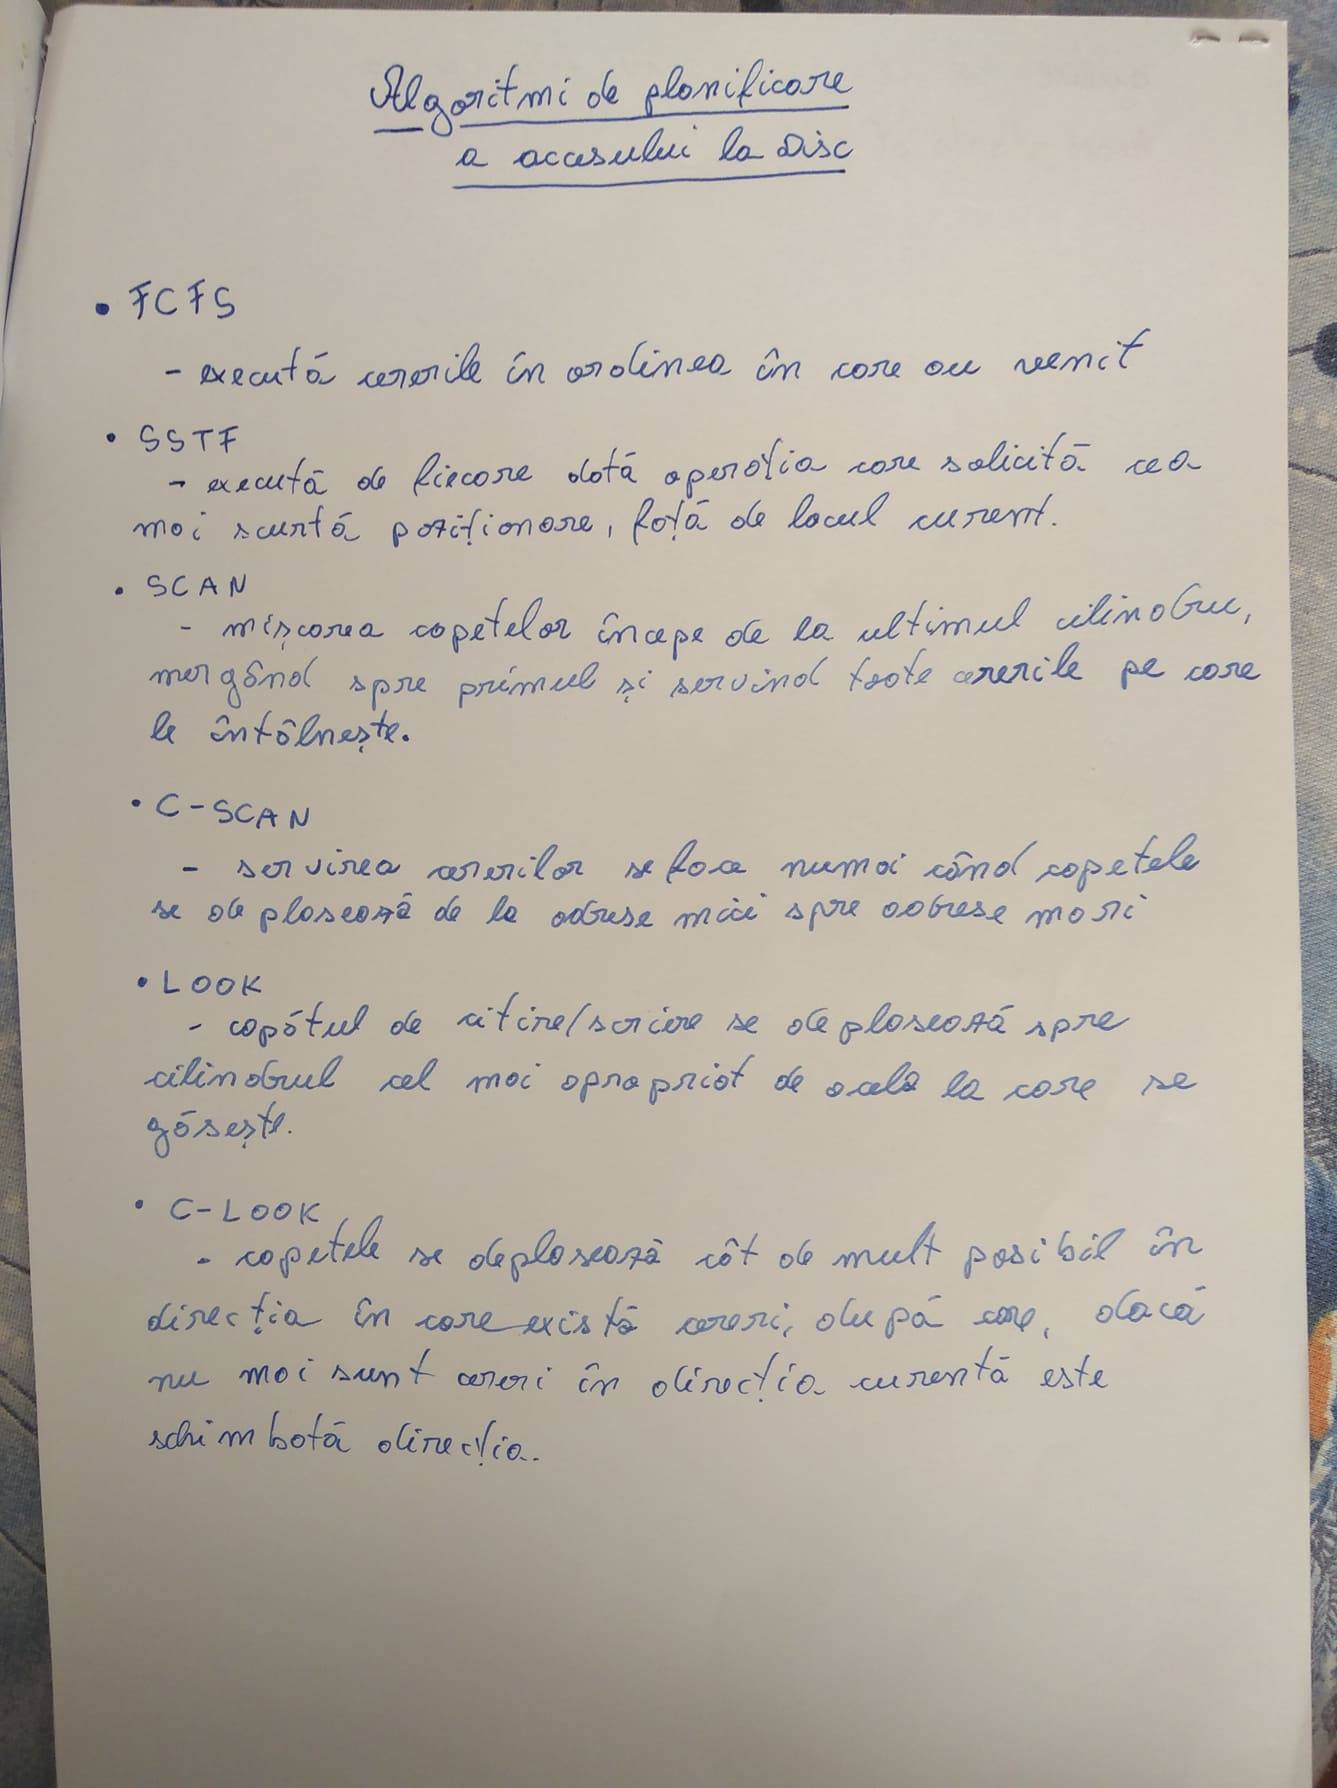 Algoritmi de planificare
a accesului la Disc
• FCFS
- execută cererile în ordinea în care au venit
• SSTF
- execută de fiecare dată operația care solicită cea
mai scurtă poziționare, față de locul curent.
• SCAN
- mișcarea capetelor începe de la ultimul cilindru,
mergând spre primul și servind toate cererile pe care
le întâlnește.
• C-SCAN
- servirea cererilor se face numai când capetele
se deplasează de la adrese mici spre adrese mari
• LOOK
- capătul de citire/scriere se deplasează spre
cilindrul cel mai apropriat de acela la care se
găsește.
• C-LOOK
- capetele se deplasează cât de mult posibil în
direcția în care există cereri, după care, dacă
nu mai sunt cereri în direcția curentă este
schimbată direcția.